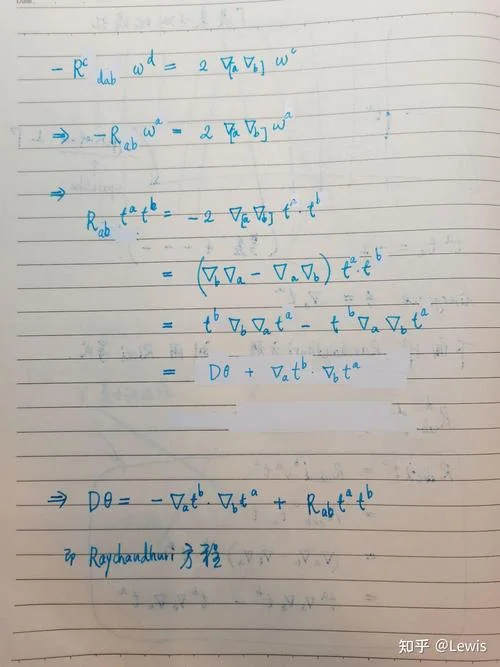 - R^c_{dab} ω^d = 2 ∇_[a ∇_b] ω^c
⇒ - R_{ab} ω^a = 2 ∇_[a ∇_b] ω^a
⇒
R_{ab} t^a t^b = -2 ∇_[a ∇_b] t^a · t^b
= (∇_b ∇_a - ∇_a ∇_b) t^a · t^b
= t^b ∇_b ∇_a t^a - t^b ∇_a ∇_b t^a
= Dθ + ∇_a t^b · ∇_b t^a
⇒ Dθ = - ∇_a t^b · ∇_b t^a + R_{ab} t^a t^b
即 Raychandhuri 方程
知乎 @Lewis